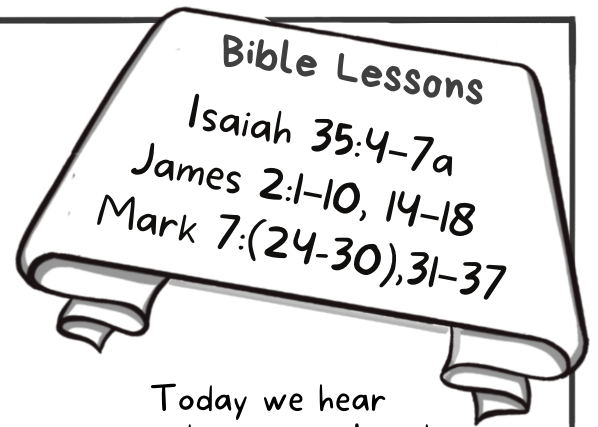 Bible Lessons
Isaiah 35:4–7a
James 2:1–10, 14–18
Mark 7:(24-30),31–37
Today we hear